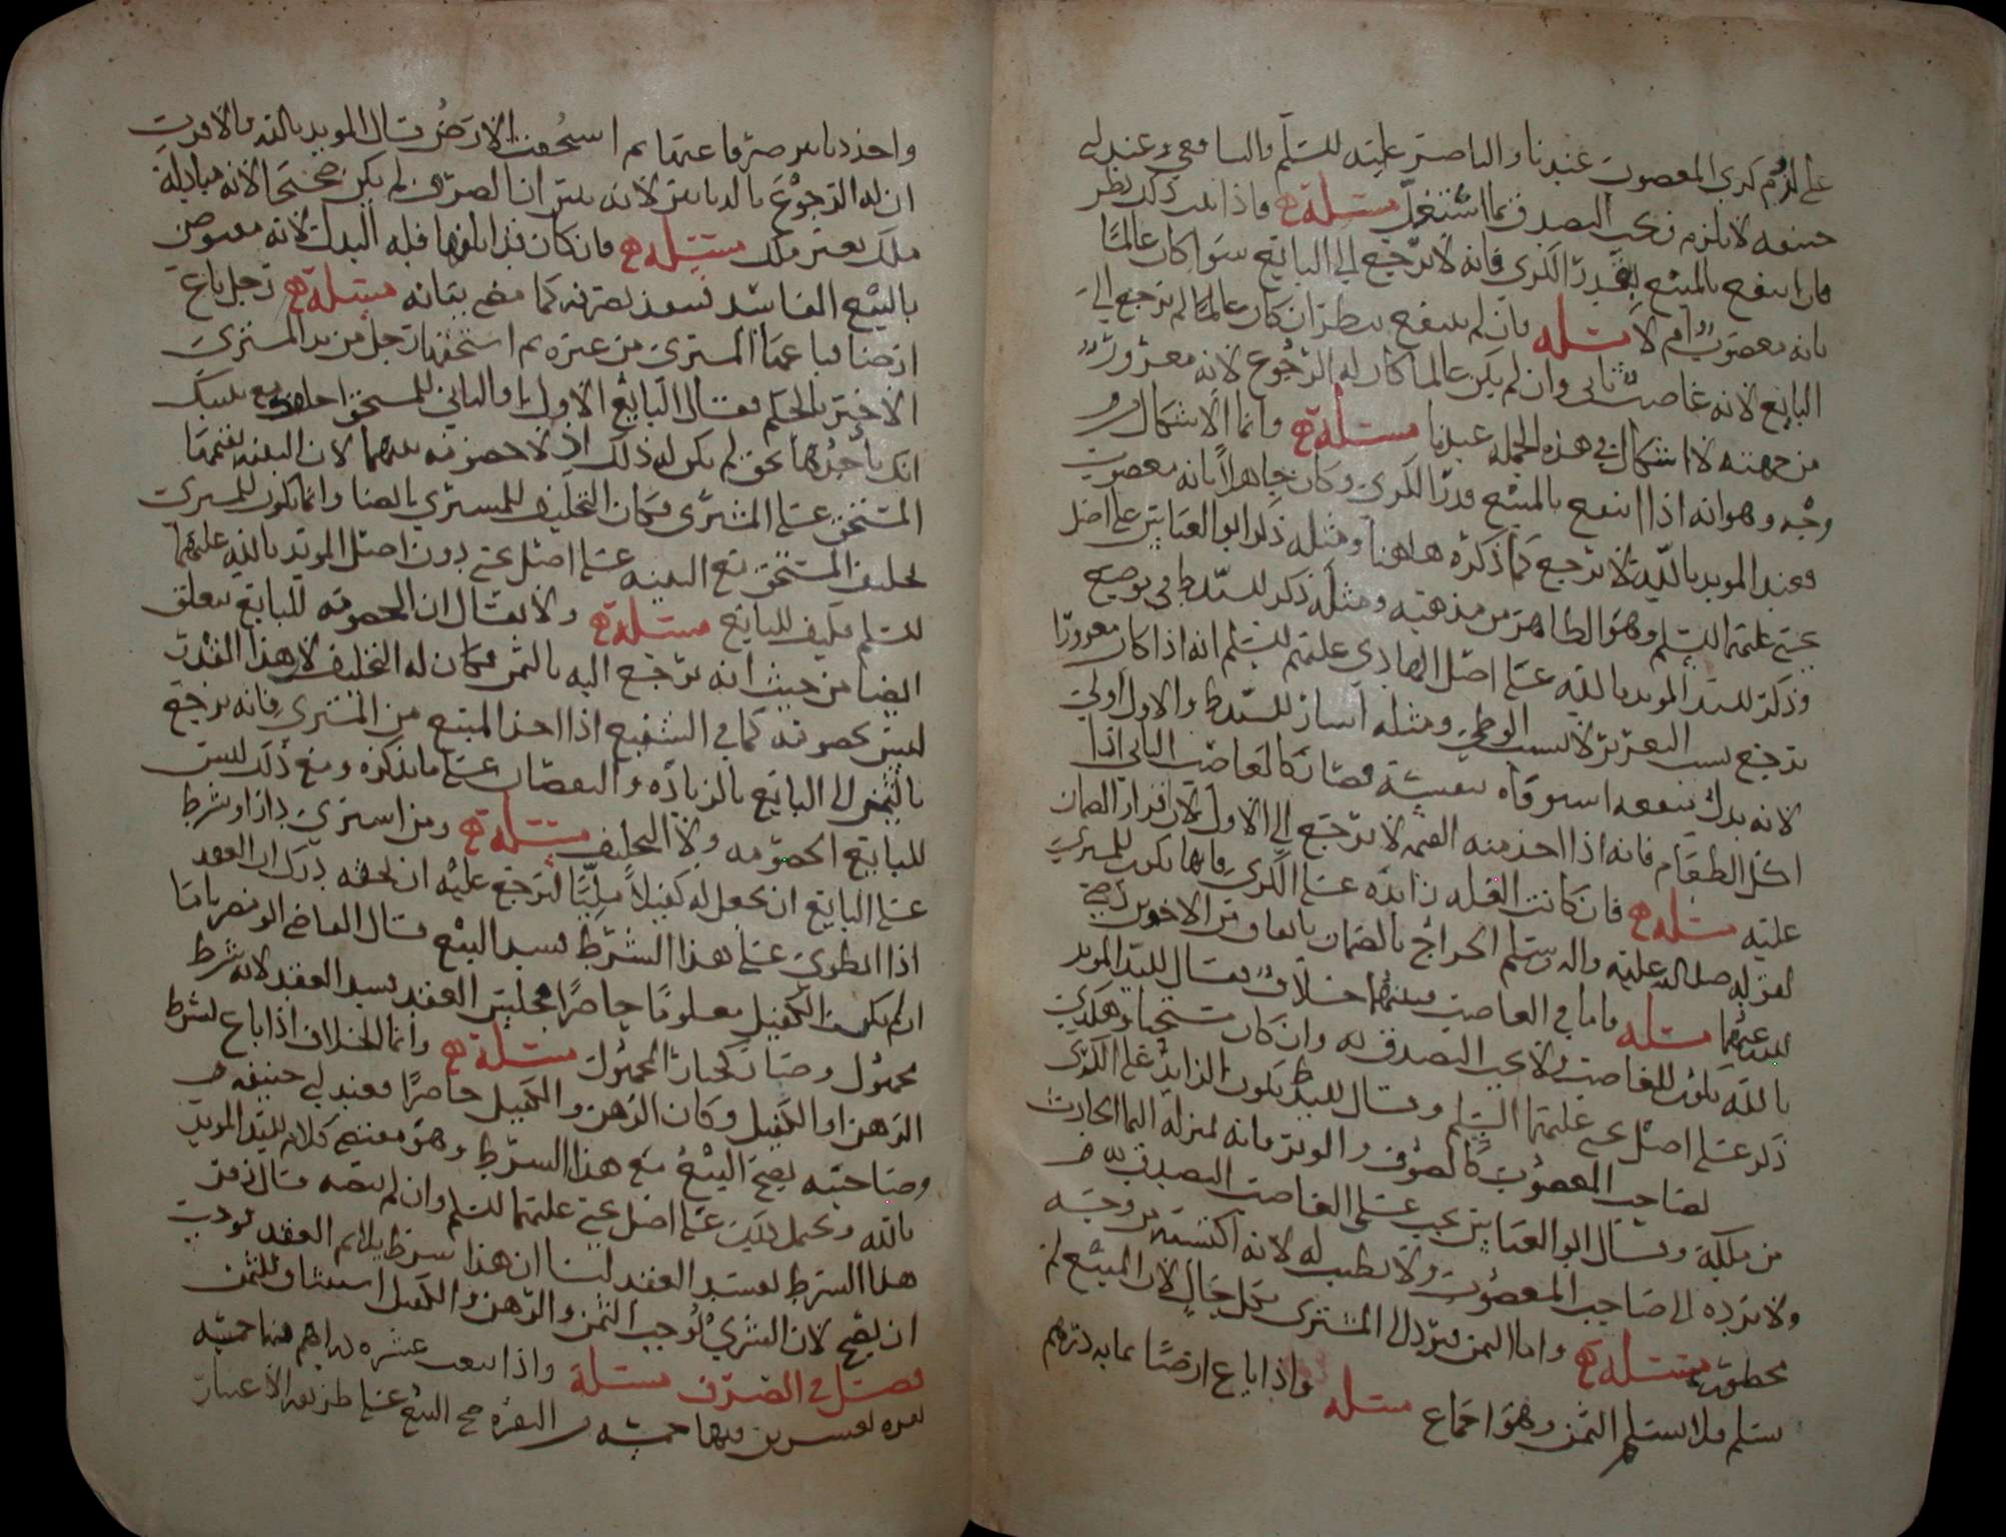 على لزوم كرى المغصوب عندنا والناصر عليه السلم والشافعي وعند ابي
حنيفه لا يلزم ويجب التصدق بما استغل مسئلة واذا ثبت ذلك نظر
فان انتفع بالمبيع بقدر الكرى فانه لا يرجع الى البايع سوا كان عالما
بانه مغصوب ام لا مسئله فان لم ينتفع ينظر ان كان عالما لم يرجع الى
البايع لانه غاصب ثاني وان لم يكن عالما كان له الرجوع لانه مغرور
من جهته لا اشكال في هذه الجمله عندنا مسئلة وانما الاشكال
وجه وهو انه اذا انتفع بالمبيع قدر الكرى وكان جاهلا بانه مغصوب
فعند المويد بالله لا يرجع كما ذكره هاهنا ومثله ذكر ابو العباس على اصل
يحيى عليهما السلم وهو الظاهر من مذهبه ومثله ذكر السيد ط في توضيح
وذكر السيد المويد بالله على اصل الهادي عليهم السلم انه اذا كان مغرورا
يرجع بسبب التغرير لا بسبب الوطي ومثله اشار السيد ط والاول اولى
لانه بدل منفعه استوفاه بنفسه فصار كالغاصب الثاني اذا
اكل الطعام فانه اذا اخذ منه القيمه لا يرجع الى الاول لان قرار الضمان
عليه مسئلة فان كانت الغله زائده على الكرى فانها تكون للمشتري
لقوله صلى الله عليه واله وسلم الخراج بالضمان باتفاق من الاخوين رضي
الله عنهما مسئله واما في الغاصب فبينهما خلاف فقال السيد المويد
بالله تكون للغاصب ولا يجب التصدق به وان كان مستحبا وهكذى
ذكر على اصل يحيى عليهما السلم وقال السيد ط يكون الزايد على الكرى
لصاحب المغصوب كالصوف والوبر فانه بمنزلة النما الحادث
من ملكه وقال ابو العباس يجب على الغاصب التصدق به
ولا يرده الى صاحب المغصوب ولا يطيب له لانه اكتسبه من وجه
محظور مسئلة واما الثمن فيرد الى المشتري بكل حال لان المبيع لم
يسلم فلا يسلم الثمن وهو اجماع مسئله واذا باع ارضا بمايه درهم
واخذ دنانير صرفا عنها ثم استحقت الارض قال المويد بالله فالاقرب
ان له الرجوع بالدنانير لانه تبين ان الصرف لم يكن صحيحا لانه مبادلة
ملك بغير ملك مسئلة فان كان قد اتلفها فله البدل لانه مقبوض
بالبيع الفاسد فينفذ تصرفه كما مضى بيانه مسئلة رجل باع
ارضا فباعها المشتري من غيره ثم استحقها رجل من يد المشتري
الاخير بالحكم فقال البايع الاول او الثاني للمستحق احلف مع بينتك
انك تاخذها بحق لم يكن له ذلك اذ لا خصومه بينهما لان البينه يقيمها
المستحق على المشتري فكان التحليف للمشتري ايضا وانما يكون للمشتري
تحليف المستحق مع البينه على اصل يحيى دون اصل المويد بالله عليهما
السلم فكيف للبايع مسئلة ولا يقال ان الخصومه للبايع يتعلق
ايضا من حيث انه يرجع اليه بالثمن فكان له التحليف لان هذا القدر
ليس بخصومه كما في الشفيع اذا اخذ المبيع من المشتري فانه يرجع
بالثمن الى البايع بالزياده والنقصان على ما نذكره ومع ذلك ليس
للبايع الخصومه ولا التحليف مسئلة ومن اشترى دارا وشرط
على البايع ان يجعل له كفيلا مليا ليرجع عليه ان لحقه درك ان العقد
اذا انطوى على هذا الشرط فسد البيع قال القاضي ابو مضر باما
ان لم يكن الكفيل معلوما حاضرا مجلس العقد فسد العقد لانه شرط
مجهول وصار كخيار المجهول مسئلة وانما الخلاف اذا باع بشرط
الرهن او الكفيل وكان الرهن والكفيل حاضرا فعند ابي حنيفه
وصاحبيه يصح البيع مع هذا الشرط وهو مقتضى كلام السيد المويد
بالله ويحمل كذلك على اصل يحيى عليهما السلم وان لم ينصه قال زفر
هذا الشرط يفسد العقد لنا ان هذا شرط يلائم العقد فوجب
ان يصح لان الشرى يوجب الثمن والرهن والكفيل استيثاق للثمن
فصل في الصرف مسئلة واذا بيعت عشره دراهم فيها خمسه
نقره بعشرين فيها خمسه من النقره صح البيع على طريقه الاعتبار